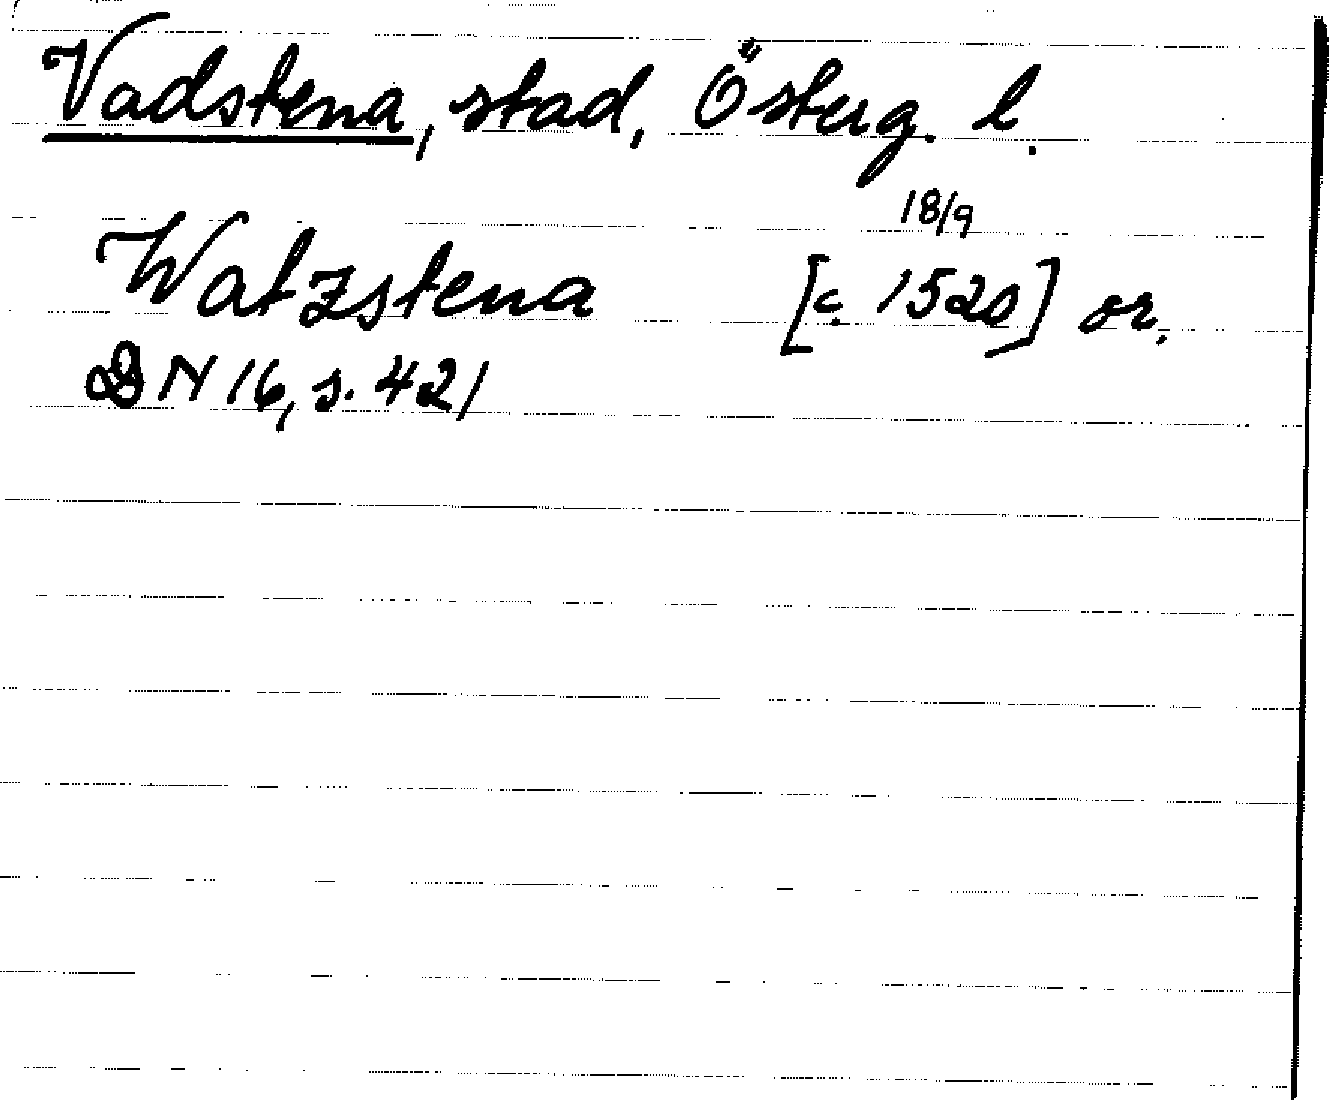 Vadstena, stad, Österg. l.
18/9
Watzstena [c. 1520] or.
DN 16, s. 421